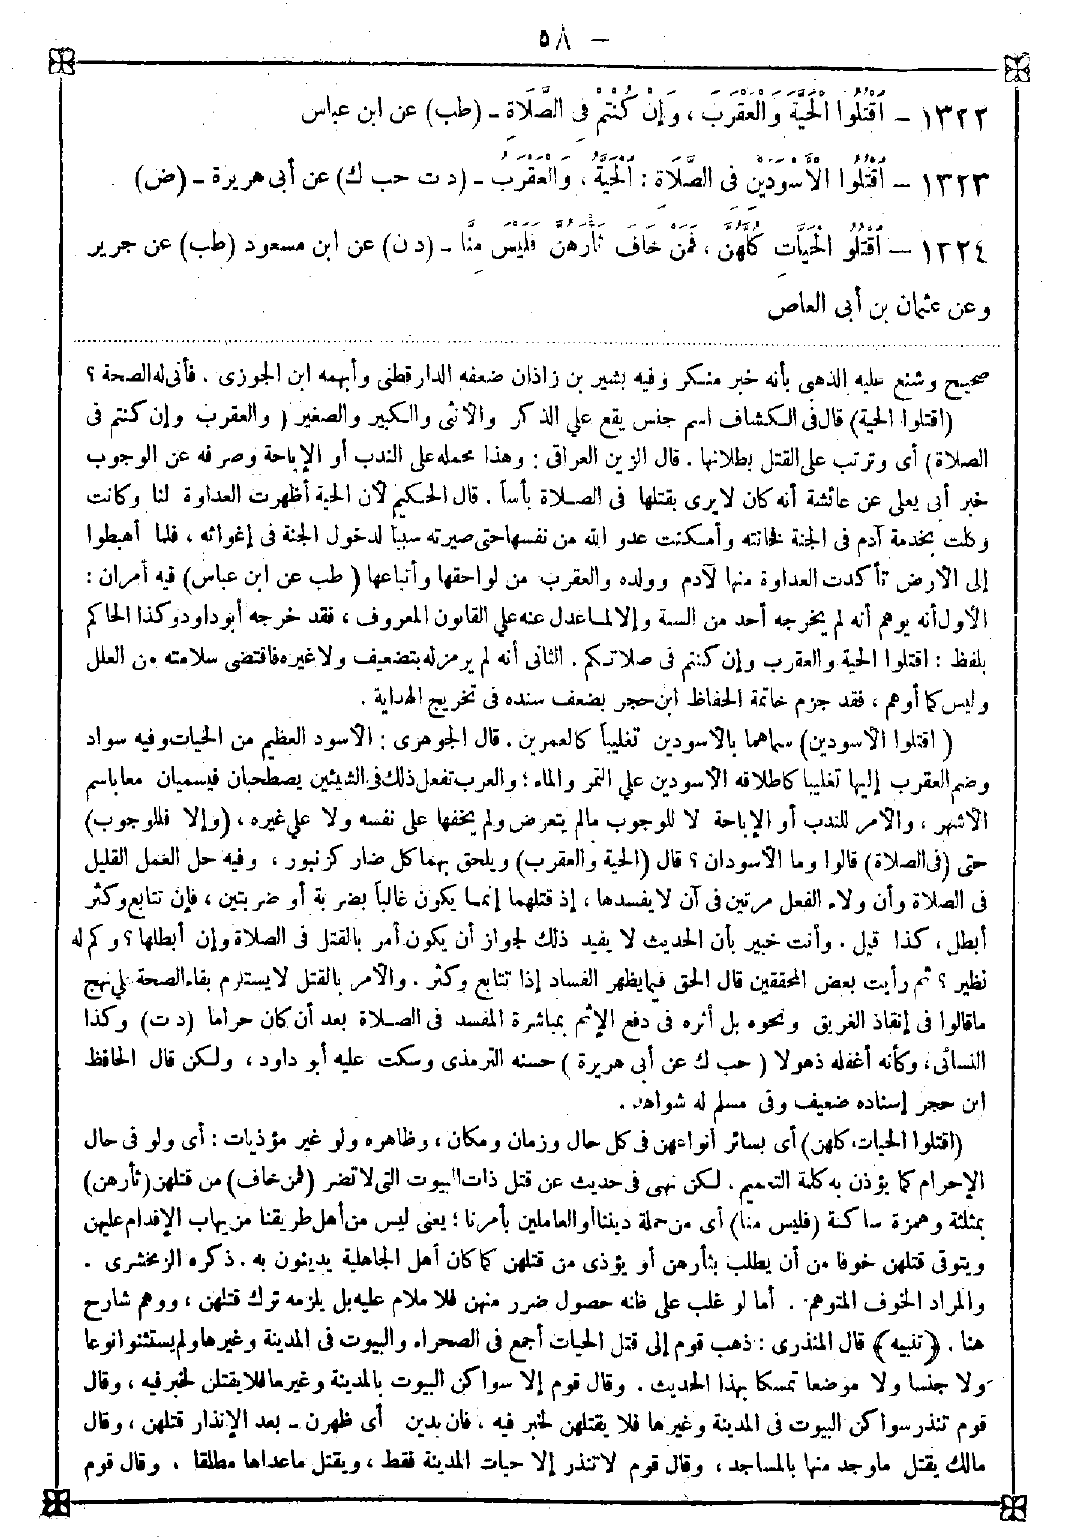 — ٥٨
١٣٢٢ – اقْتُلُوا الْحَيَّةَ وَالْعَقْرَبَ ، وَإِنْ كُنْتُمْ فِي الصَّلَاةِ – (طب) عن ابن عباس
١٣٢٣ – اقْتُلُوا الْأَسْوَدَيْنِ فِي الصَّلَاةِ : الْحَيَّةُ ، وَالْعَقْرَبُ – (د ت حب ك) عن أبى هريرة – (ض)
١٣٢٤ – اقْتُلُوا الْحَيَّاتِ كُلَّهُنَّ ، فَمَنْ خَافَ ثَأْرَهُنَّ فَلَيْسَ مِنَّا – (د ن) عن ابن مسعود (طب) عن جرير
وعن عثمان بن أبى العاص
صحيح وشنع عليه الذهبى بأنه خبر منكر وفيه بشير بن زاذان ضعفه الدارقطنى وأبهمه ابن الجوزى . فأنى له الصحة ؟
(اقتلوا الحية) قال فى الكشاف اسم جنس يقع على الذكر والأنثى والكبير والصغير ( والعقرب وإن كنتم فى
الصلاة) أى وترتب على القتل بطلانها . قال الزين العراقى : وهذا محمله على الندب أو الإباحة وصرفه عن الوجوب
خبر أبى يعلى عن عائشة أنه كان لا يرى بقتلها فى الصلاة بأسا . قال الحكيم لأن الحية أظهرت العداوة لنا وكانت
وكلت بخدمة آدم فى الجنة فخانته وأمكنت عدو الله من نفسها حتى صيرته سببا لدخول الجنة فى إغوائه ، فلما أهبطوا
إلى الأرض تأكدت العداوة منها لآدم وولده والعقرب من لواحقها وأتباعها ( طب عن ابن عباس) فيه أمران :
الأول أنه يوهم أنه لم يخرجه أحد من الستة وإلا لما عدل عنه على القانون المعروف ، فقد خرجه أبو داود وكذا الحاكم
بلفظ : اقتلوا الحية والعقرب وإن كنتم فى صلاتكم . الثانى أنه لم يرمز له بتضعيف ولا غيره فاقتضى سلامته من العلل
وليس كما أوهم ، فقد جزم خاتمة الحفاظ ابن حجر بضعف سنده فى تخريج الهداية .
( اقتلوا الأسودين) سماهما بالأسودين تغليبا كالعمرين . قال الجوهرى : الأسود العظيم من الحيات وفيه سواد
وضم العقرب إليها تغليبا كاطلاقه الأسودين على التمر والماء ؛ والعرب تفعل ذلك فى الشيئين يصطحبان فيسميان معا باسم
الأشهر ، والأمر للندب أو الإباحة لا للوجوب مالم يتعرض ولم يخفها على نفسه ولا على غيره ، (وإلا فللوجوب)
حتى (فى الصلاة) قالوا وما الأسودان ؟ قال (الحية والعقرب) ويلحق بهما كل ضار كزنبور ، وفيه حل العمل القليل
فى الصلاة وأن ولاء الفعل مرتين فى آن لا يفسدها ، إذ قتلهما إنما يكون غالبا بضربة أو ضربتين ، فإن تتابع وكثر
أبطل ، كذا قيل . وأنت خبير بأن الحديث لا يفيد ذلك لجواز أن يكون أمر بالقتل فى الصلاة وإن أبطلها ؟ وكم له
نظير ؟ ثم رأيت بعض المحققين قال الحق فيما يظهر الفساد إذا تتابع وكثر . والأمر بالقتل لا يستلزم بقاء الصحة على نهج
ماقالوا فى إنقاذ الغريق ونحوه بل أثره فى دفع الإثم بمباشرة المفسد فى الصلاة بعد أن كان حراما (د ت) وكذا
النسائى ، وكأنه أغفله ذهولا ( حب ك عن أبى هريرة ) حسنه الترمذى وسكت عليه أبو داود ، ولكن قال الحافظ
ابن حجر إسناده ضعيف وفى مسلم له شواهد .
(اقتلوا الحيات كلهن) أى بسائر أنواعهن فى كل حال وزمان ومكان ، وظاهره ولو غير مؤذيات : أى ولو فى حال
الإحرام كما يؤذن به كلمة التعميم . لكن نهى فى حديث عن قتل ذات البيوت التى لا تضر (فمن خاف) من قتلهن (ثأرهن)
بمثلثة وهمزة ساكنة (فليس منا) أى من جملة ديننا أو العاملين بأمرنا ؛ يعنى ليس من أهل طريقنا من يهاب الإقدام عليهن
ويتوقى قتلهن خوفا من أن يطلب بثأرهن أو يؤذى من قتلهن كما كان أهل الجاهلية يدينون به . ذكره الزمخشرى .
والمراد الخوف المتوهم . أما لو غلب على ظنه حصول ضرر منهن فلا ملام عليه بل يلزمه ترك قتلهن ، ووهم شارح
هنا . ﴿ تنبيه ﴾ قال المنذرى : ذهب قوم إلى قتل الحيات أجمع فى الصحراء والبيوت فى المدينة وغيرها ولم يستثنوا نوعا
ولا جنسا ولا موضعا تمسكا بهذا الحديث . وقال قوم إلا سواكن البيوت بالمدينة وغيرها فلا يقتلن لخبر فيه ، وقال
قوم تنذر سواكن البيوت فى المدينة وغيرها فلا يقتلهن لخبر فيه ، فان بدين أى ظهرن – بعد الإنذار قتلهن ، وقال
مالك يقتل ماوجد منها بالمساجد ، وقال قوم لاتنذر إلا حيات المدينة فقط ، ويقتل ماعداها مطلقا . وقال قوم